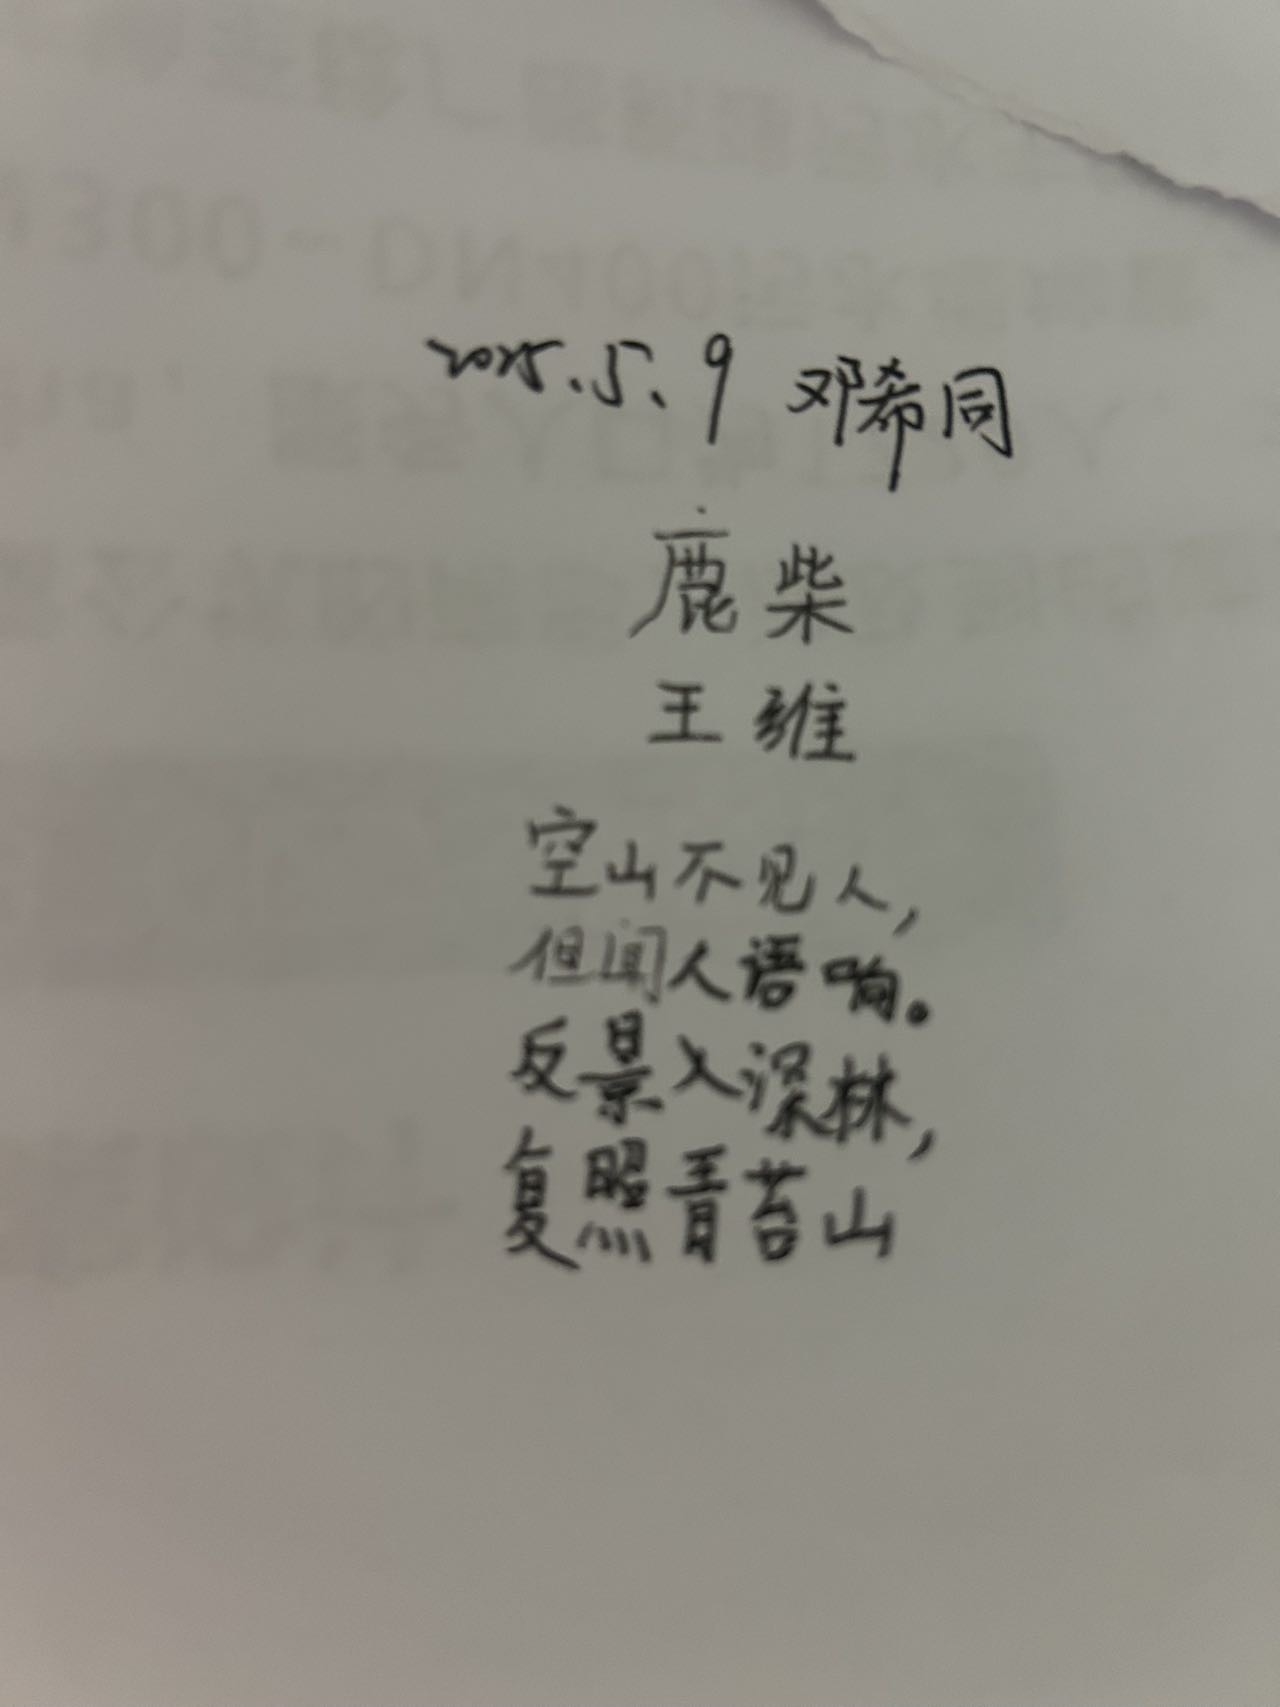 2025.5.9 邓希同
鹿柴
王维
空山不见人，
但闻人语响。
反景入深林，
复照青苔山